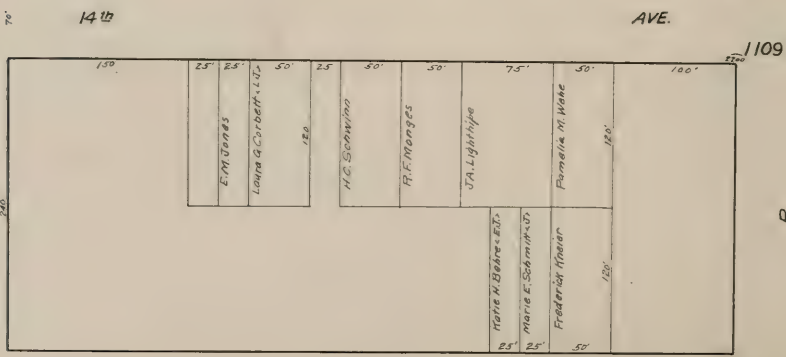 70'
14th AVE.
1109
2200
150 25' 25' 50' 25 50' 50' 75' 50' 100'
240
E.M. Jones
Laura G. Corbett <L.J>
120
H.C. Schwinn
R.F. Monges
J.A. Lighthipe
Pamelia M. Wabe
120'
Katie H. Behre <E.J.>
Marie E. Schmitt <J>
Frederick Kneier
120'
25' 25' 50'